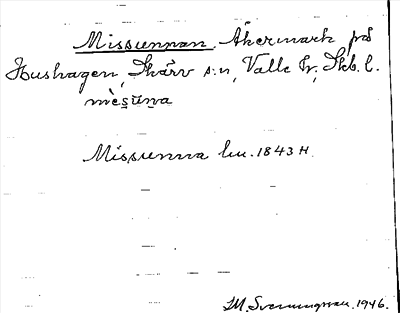 Missunnan. Åkermark på
Hushagen, Skärv s:n, Valle hd, Skb. l.
mèsūna
Missunna lm. 1843 H.
M. Svenungsson. 1946.